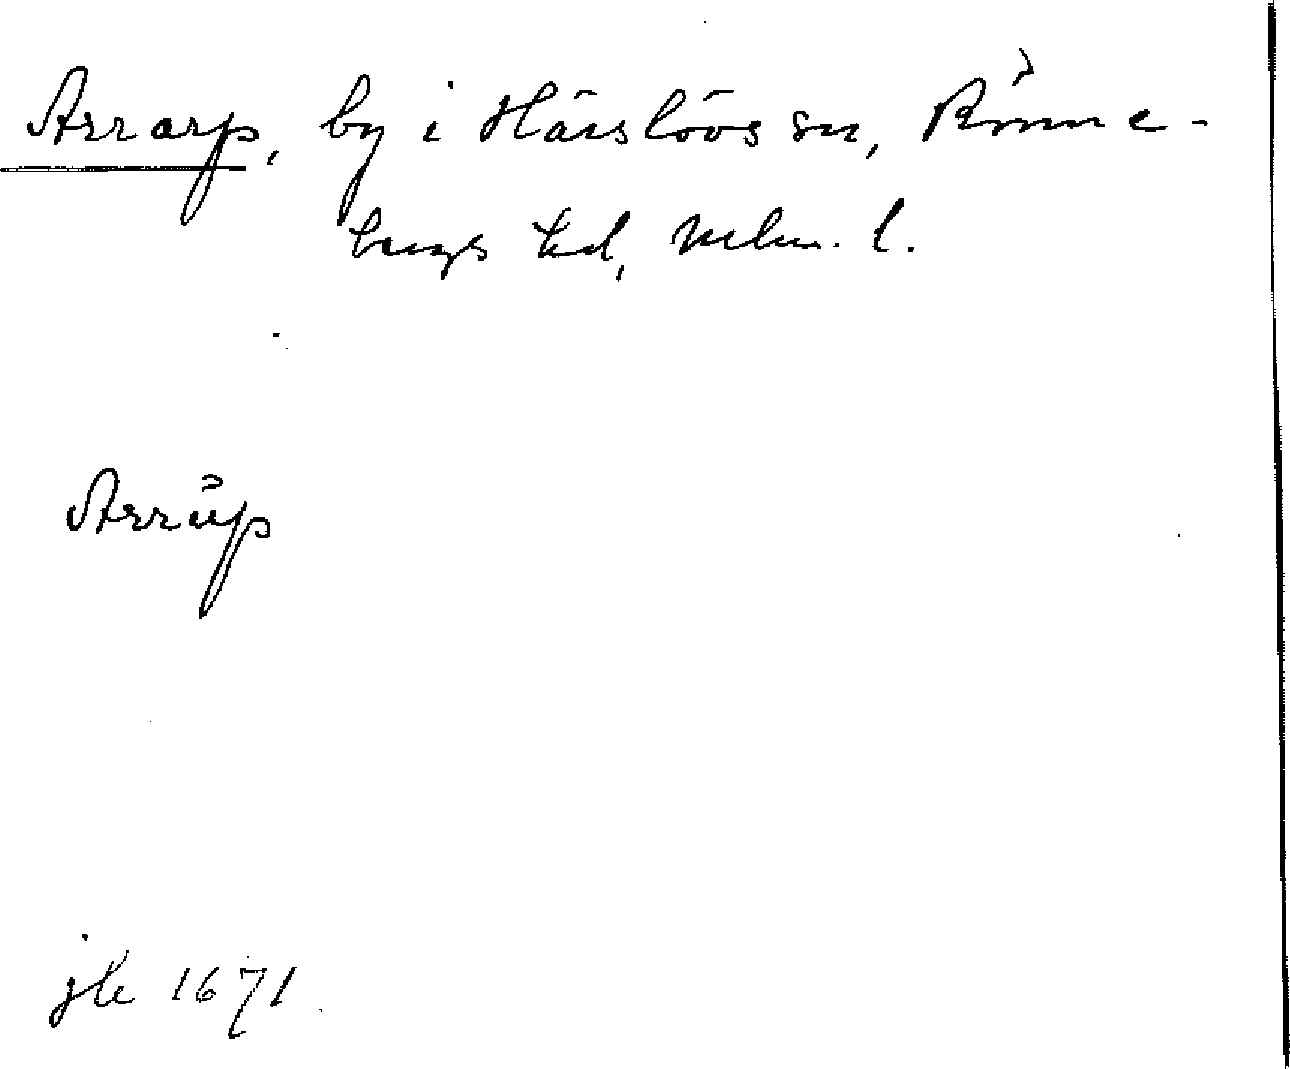 Arrarp, by i Härslövs sn, Rönne-
bergs hd, Mlm. l.
Arrŭp
jb 1671